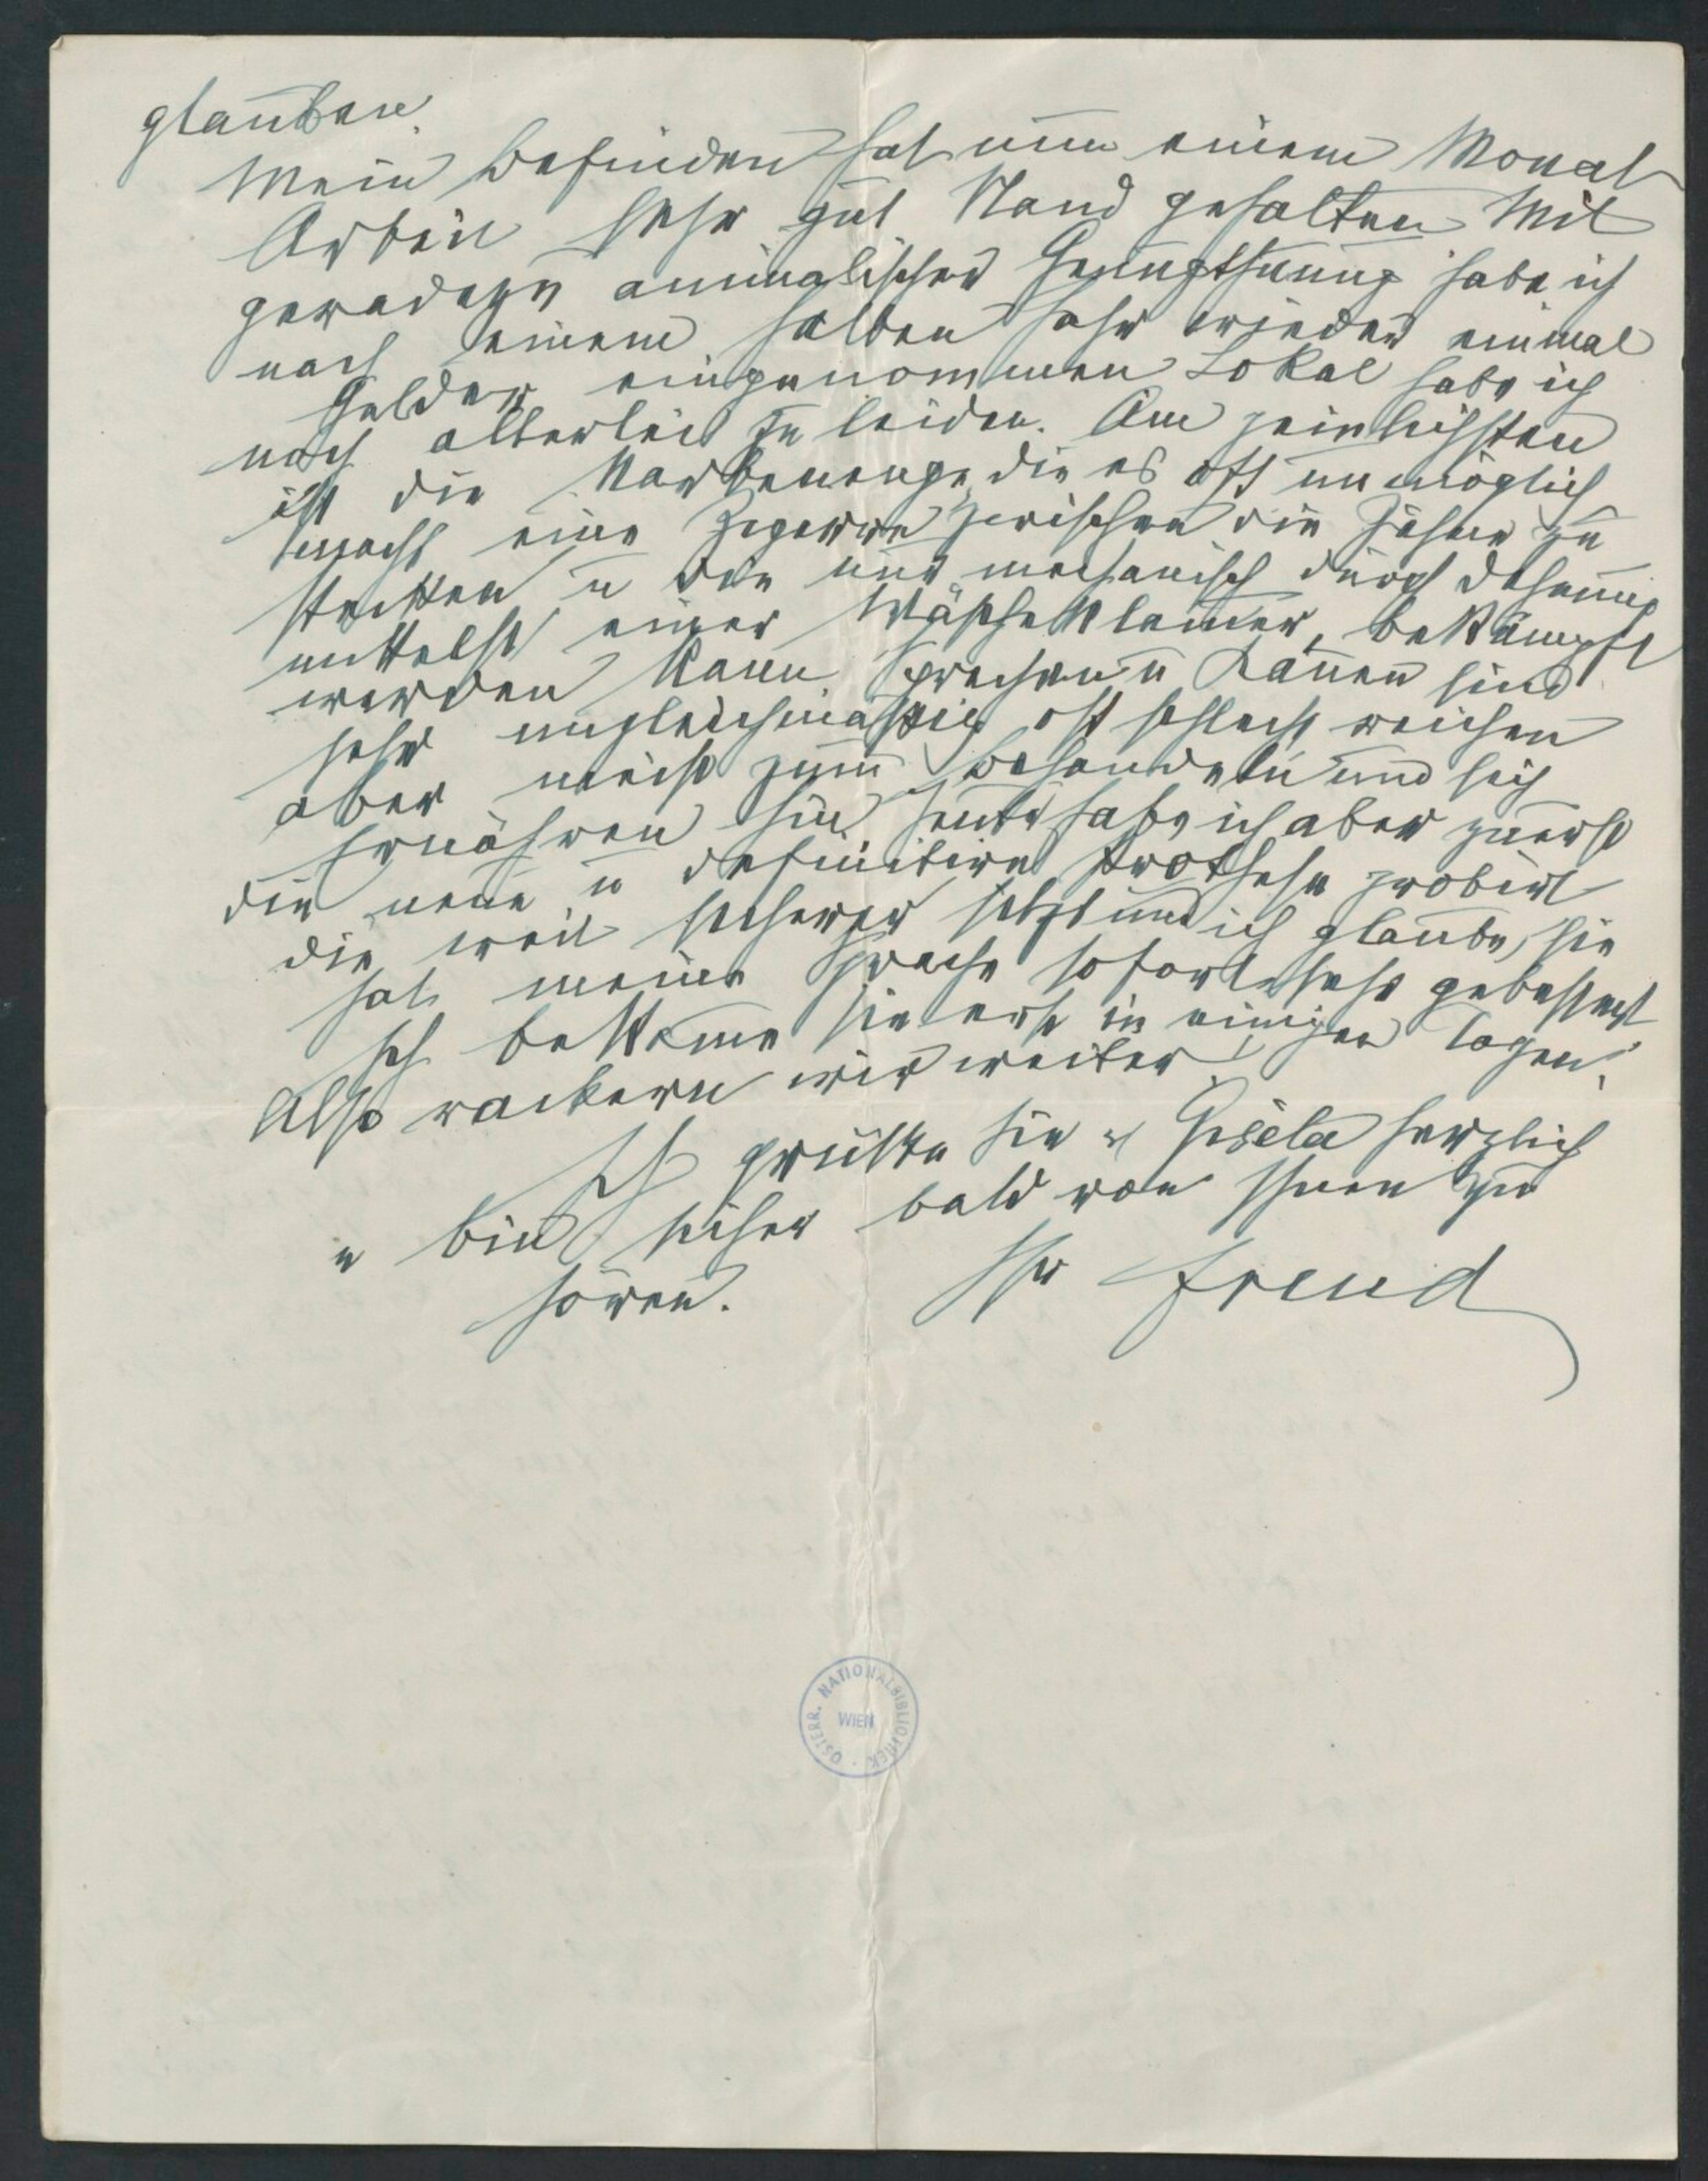 glauben.
Mein Befinden hat nun einem Monat
Arbeit sehr gut Stand gehalten. Mit
geradezu animalischer Genugthuung habe ich
nach einem halben Jahr wieder einmal
Gelder eingenommen. Lokal habe ich
noch allerlei zu leiden. Am peinlichsten
ist die Narbenenge, die es oft unmöglich
macht eine Zigarre zwischen die Zähne zu
stecken u die nur mechanisch durch Dehnung
mittelst einer Wäscheklammer, bekämpft
werden kann. Sprechen u Kauen sind
sehr ungleichmäßig oft schlecht reichen
aber meist zum Behandeln und sich
Ernähren hin. Heute habe ich aber zuerst
die neue u definitive Prothese probirt
die weit sicherer sitzt und ich glaube, sie
hat meine Sprache sofort sehr gebessert
Ich bekomme sie erst in einigen Tagen.
Also rackern wir weiter.
Ich grüße Sie u Gisela herzlich
u bin sicher bald von Ihnen zu
hören.
Ihr Freud
ÖSTERR. NATIONALBIBLIOTHEK
WIEN